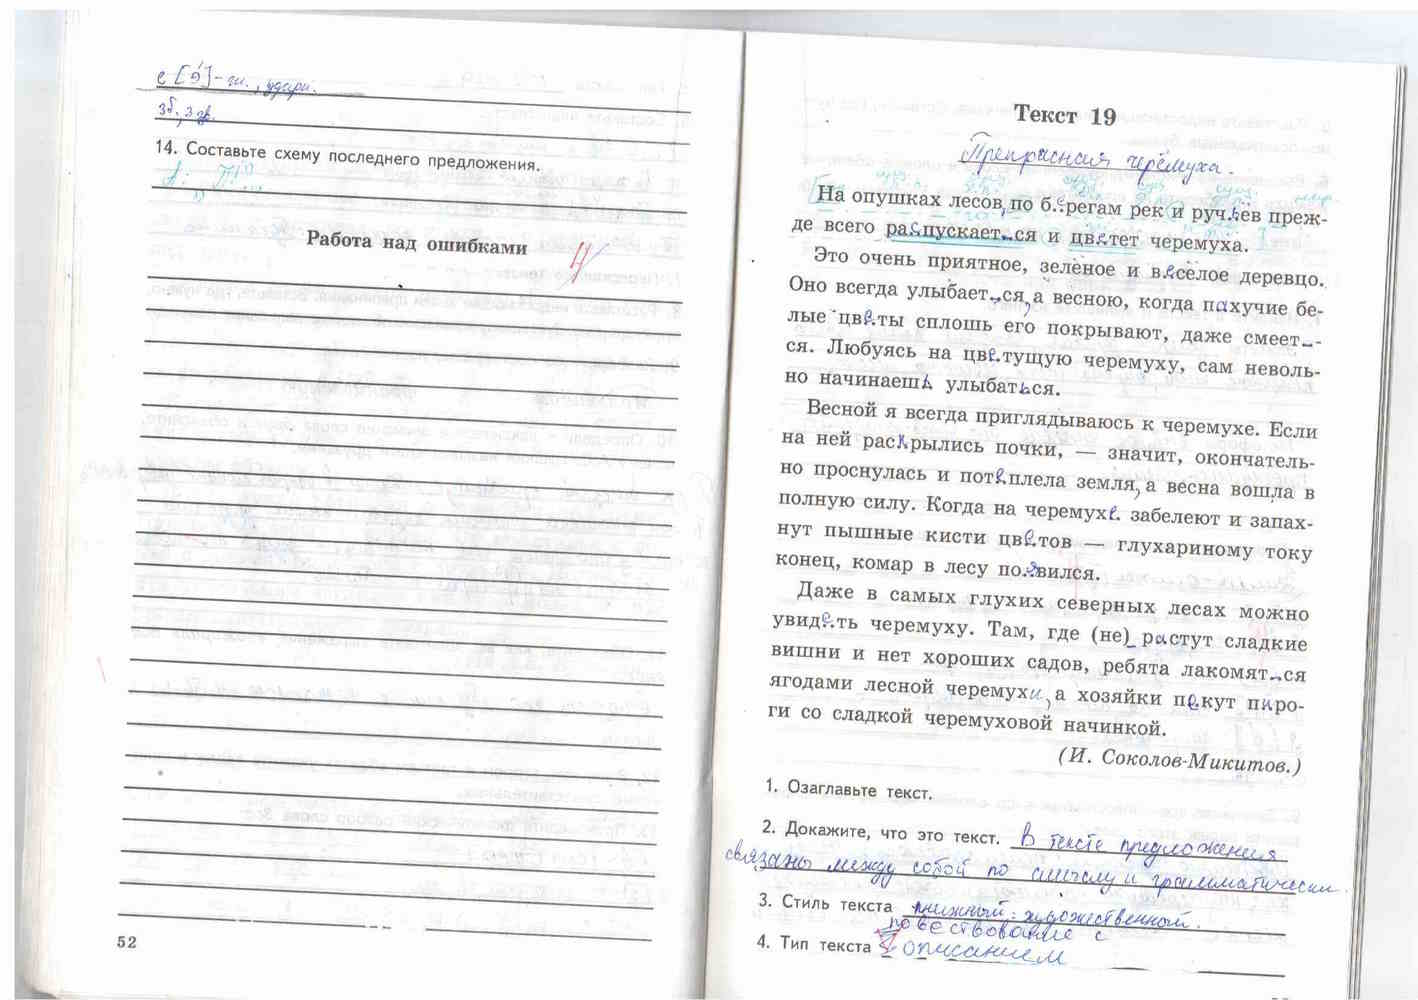 е [э́] - гл., ударн.
3б., 3 зв.
14. Составьте схему последнего предложения.
А: „П."
Работа над ошибками
4
52
Текст 19
Прекрасная черёмуха.
На опушках лесов, по берегам рек и ручьев преж-
де всего распускается и цветет черемуха.
Это очень приятное, зелёное и веселое деревцо.
Оно всегда улыбается, а весною, когда пахучие бе-
лые цветы сплошь его покрывают, даже смеет-
ся. Любуясь на цветущую черемуху, сам неволь-
но начинаешь улыбаться.
Весной я всегда приглядываюсь к черемухе. Если
на ней раскрылись почки, — значит, окончатель-
но проснулась и потеплела земля, а весна вошла в
полную силу. Когда на черемухе забелеют и запах-
нут пышные кисти цветов — глухариному току
конец, комар в лесу появился.
Даже в самых глухих северных лесах можно
увидеть черемуху. Там, где (не) растут сладкие
вишни и нет хороших садов, ребята лакомятся
ягодами лесной черемухи, а хозяйки пекут пиро-
ги со сладкой черемуховой начинкой.
(И. Соколов-Микитов.)
1. Озаглавьте текст.
2. Докажите, что это текст. В тексте предложения
связаны между собой по смыслу и грамматически.
3. Стиль текста книжный: художественный.
повествование с
4. Тип текста описанием